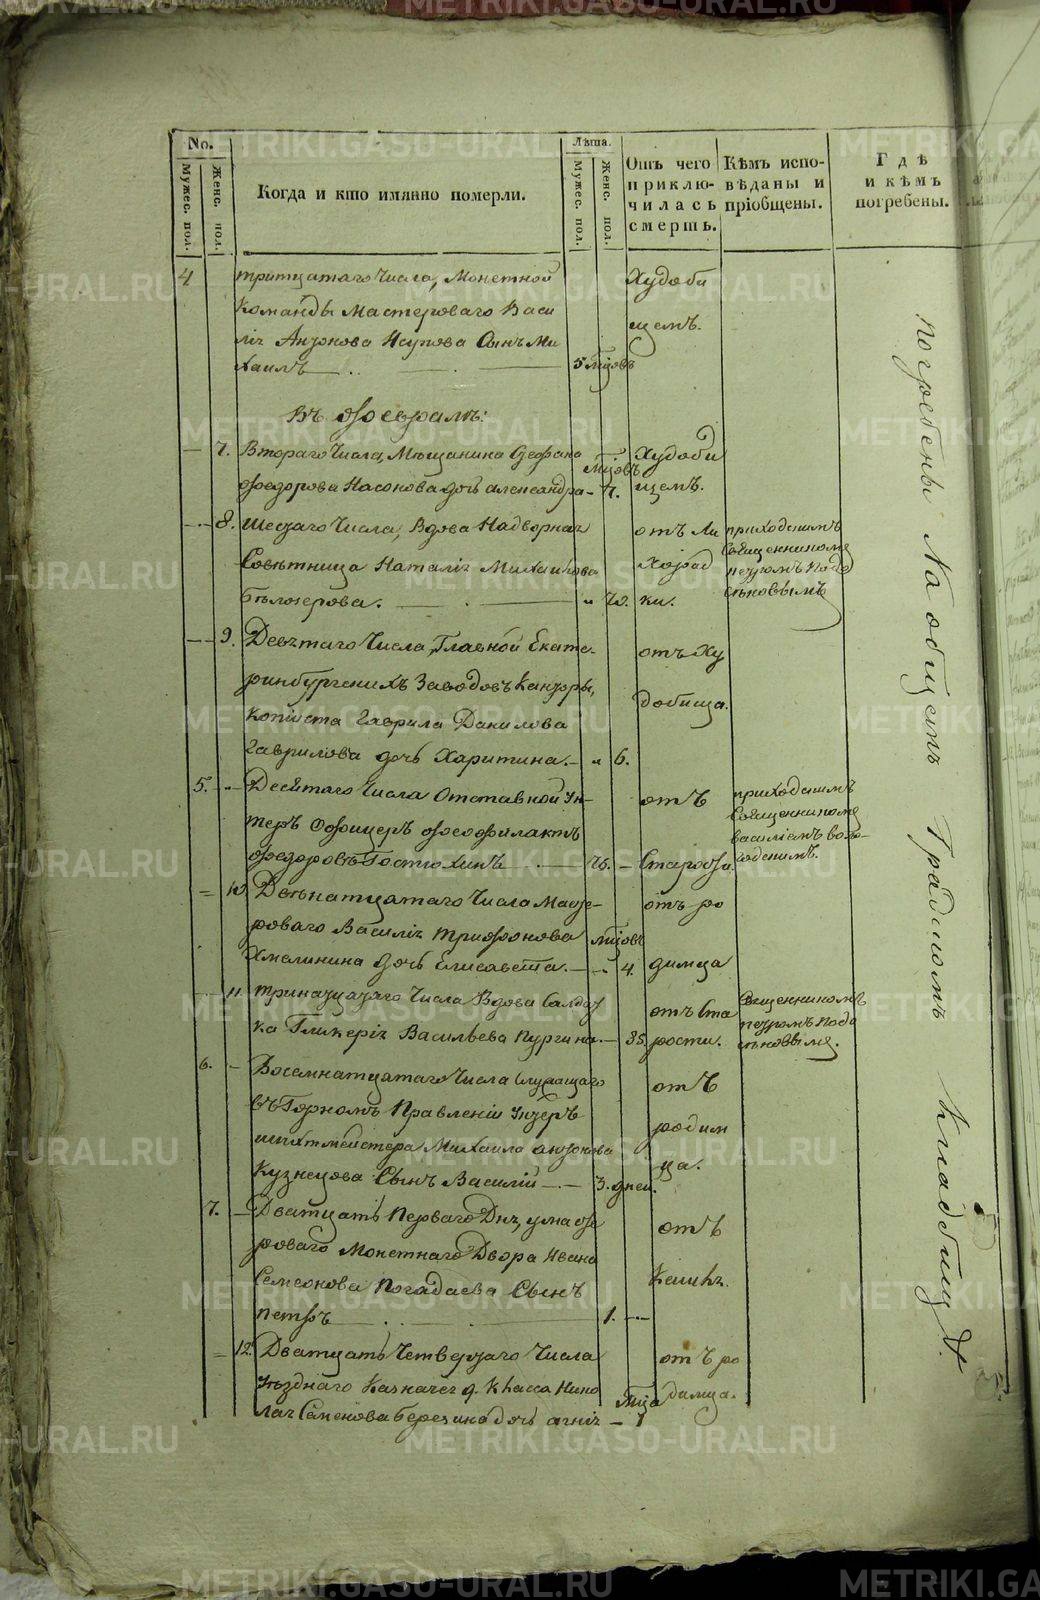 No.
Мужес. пол.
Женс. пол.
Когда и кто имянно померли.
Лѣта.
Мужес. пол.
Женс. пол.
Отъ чего
приклю-
чилась
смерть.
Кѣмъ испо-
вѣданы и
пріобщены.
Гдѣ
и кѣмъ
погребены.
4
тритцатаго Числа, Монетной
Команды Мастероваго Васи
лія Антонова Сынъ Ми
хаилъ
5 мцовъ
Худоби
щемъ.
Въ Феврале:
7. Втораго Числа, Мѣщанина Стефана
Федорова Насонова дочь Александра
мцовъ
Худоби
щемъ.
8. Шестаго Числа, Вдова Надворная
Совѣтница Наталія Михайлова
Бѣлозерова.
70.
отъ Ли
хорад
ки.
приходскимъ
Священникомъ
петромъ
9. Девятаго Числа, Главной Екате-
ринбургскихъ Заводовъ Канторы,
Копіиста Гаврила Данилова
Гаврилова дочь Харитина.
6.
отъ Ху
добища.
5. Десятаго Числа Отставной Ун-
теръ Офицеръ Феофилактъ
Федоровъ Гостюхинъ
76.
отъ
Старости.
приходскимъ
Священникомъ
василіемъ
10. Двенатцатаго Числа Масте-
роваго Василія Трифонова
Хмелинина дочь Елисавета.
мцовъ
4.
отъ ро
димца
11. Тринатцатаго Числа Вдова Салдат
ка Гликерія Васильева Пургина.
85.
отъ Ста
рости.
Священникомъ
петромъ
6. Восемнатцатаго Числа Служащаго
въ Горномъ Правленіи Унтеръ-
шихтмейстера Михаила Антонова
Кузнецова Сынъ Василій
3. дней.
отъ
родим
ца.
7. Дватцать Перваго Дня, у масте
роваго Монетнаго Двора Ивана
Семенова Погадаева Сынъ
Петръ
1.
отъ
Кашля.
12. Дватцать Четвертаго Числа
Уѣзднаго Казначея 9. Класса Нико
лая Семенова Березина дочь Агнія
мца
1
отъ ро
димца.
погребены На общемъ Градскомъ Кладбищѣ.
METRIKI.GASO-URAL.RU